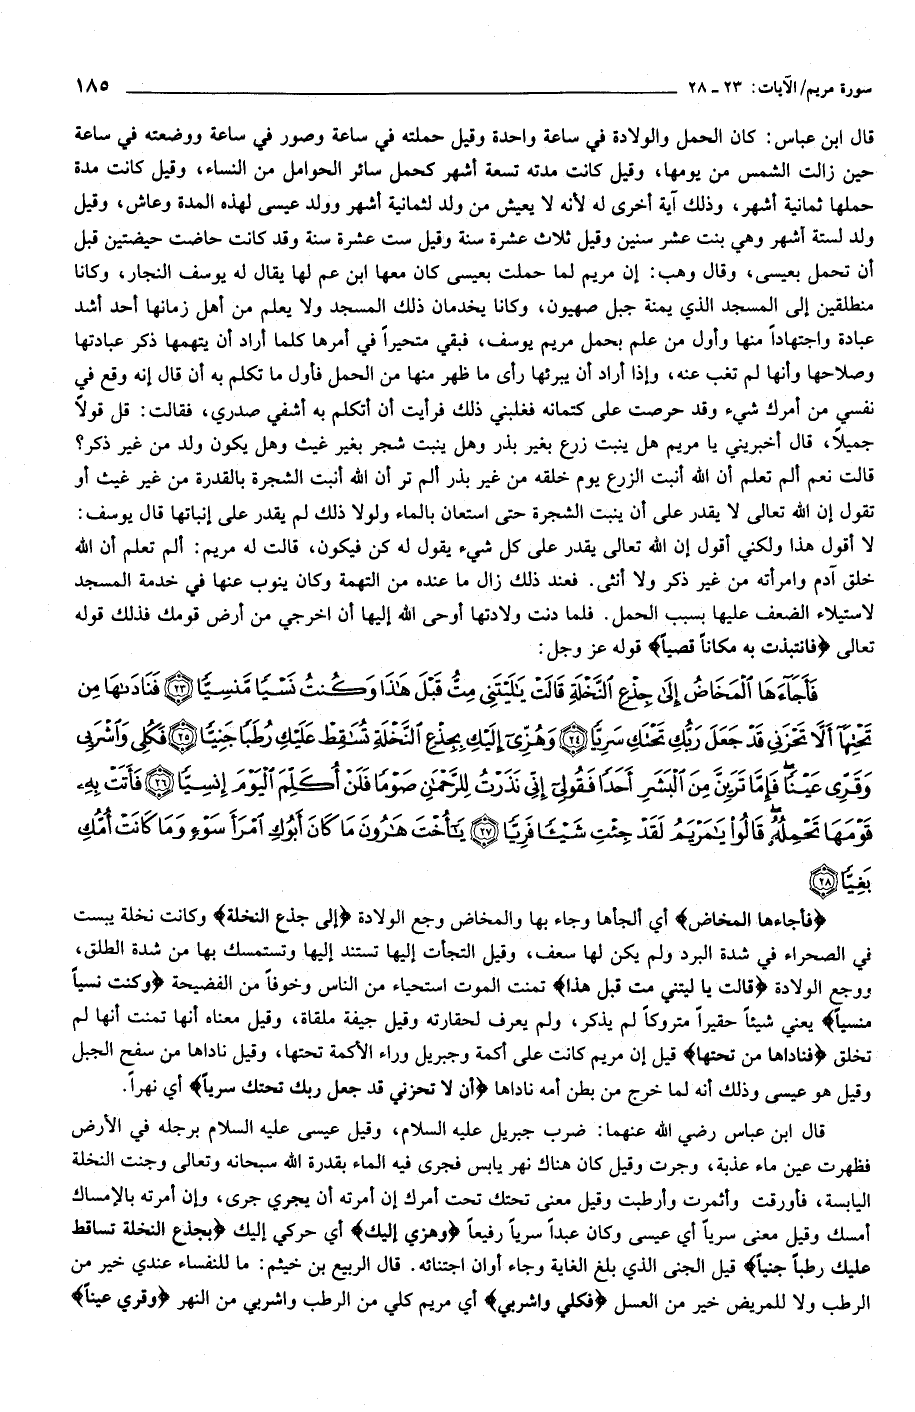 سورة مريم/ الآيات: ٢٣ ـ ٢٨ ١٨٥
قال ابن عباس: كان الحمل والولادة في ساعة واحدة وقيل حملته في ساعة وصور في ساعة ووضعته في ساعة
حين زالت الشمس من يومها، وقيل كانت مدته تسعة أشهر كحمل سائر الحوامل من النساء، وقيل كانت مدة
حملها ثمانية أشهر، وذلك آية أخرى له لأنه لا يعيش من ولد لثمانية أشهر وولد عيسى لهذه المدة وعاش، وقيل
ولد لستة أشهر وهي بنت عشر سنين وقيل ثلاث عشرة سنة وقيل ست عشرة سنة وقد كانت حاضت حيضتين قبل
أن تحمل بعيسى، وقال وهب: إن مريم لما حملت بعيسى كان معها ابن عم لها يقال له يوسف النجار، وكانا
منطلقين إلى المسجد الذي يمنة جبل صهيون، وكانا يخدمان ذلك المسجد ولا يعلم من أهل زمانها أحد أشد
عبادة واجتهاداً منها وأول من علم بحمل مريم يوسف، فبقي متحيراً في أمرها كلما أراد أن يتهمها ذكر عبادتها
وصلاحها وأنها لم تغب عنه، وإذا أراد أن يبرئها رأى ما ظهر منها من الحمل فأول ما تكلم به أن قال إنه وقع في
نفسي من أمرك شيء وقد حرصت على كتمانه فغلبني ذلك فرأيت أن أتكلم به أشفي صدري، فقالت: قل قولاً
جميلاً، قال أخبريني يا مريم هل ينبت زرع بغير بذر وهل ينبت شجر بغير غيث وهل يكون ولد من غير ذكر؟
قالت نعم ألم تعلم أن الله أنبت الزرع يوم خلقه من غير بذر ألم تر أن الله أنبت الشجرة بالقدرة من غير غيث أو
تقول إن الله تعالى لا يقدر على أن ينبت الشجرة حتى استعان بالماء ولولا ذلك لم يقدر على إنباتها قال يوسف:
لا أقول هذا ولكني أقول إن الله تعالى يقدر على كل شيء يقول له كن فيكون، قالت له مريم: ألم تعلم أن الله
خلق آدم وامرأته من غير ذكر ولا أنثى. فعند ذلك زال ما عنده من التهمة وكان ينوب عنها في خدمة المسجد
لاستيلاء الضعف عليها بسبب الحمل. فلما دنت ولادتها أوحى الله إليها أن اخرجي من أرض قومك فذلك قوله
تعالى ﴿فانتبذت به مكاناً قصياً﴾ قوله عز وجل:
فَأَجَآءَهَا ٱلْمَخَاضُ إِلَىٰ جِذْعِ ٱلنَّخْلَةِ قَالَتْ يَٰلَيْتَنِى مِتُّ قَبْلَ هَٰذَا وَكُنتُ نَسْيًا مَّنسِيًّا ﴿٢٣﴾ فَنَادَىٰهَا مِن
تَحْتِهَآ أَلَّا تَحْزَنِى قَدْ جَعَلَ رَبُّكِ تَحْتَكِ سَرِيًّا ﴿٢٤﴾ وَهُزِّىٓ إِلَيْكِ بِجِذْعِ ٱلنَّخْلَةِ تُسَٰقِطْ عَلَيْكِ رُطَبًا جَنِيًّا ﴿٢٥﴾ فَكُلِى وَٱشْرَبِى
وَقَرِّى عَيْنًا ۖ فَإِمَّا تَرَيِنَّ مِنَ ٱلْبَشَرِ أَحَدًا فَقُولِىٓ إِنِّى نَذَرْتُ لِلرَّحْمَٰنِ صَوْمًا فَلَنْ أُكَلِّمَ ٱلْيَوْمَ إِنسِيًّا ﴿٢٦﴾ فَأَتَتْ بِهِۦ
قَوْمَهَا تَحْمِلُهُۥ ۖ قَالُوا۟ يَٰمَرْيَمُ لَقَدْ جِئْتِ شَيْـًٔا فَرِيًّا ﴿٢٧﴾ يَٰٓأُخْتَ هَٰرُونَ مَا كَانَ أَبُوكِ ٱمْرَأَ سَوْءٍ وَمَا كَانَتْ أُمُّكِ
بَغِيًّا ﴿٢٨﴾
﴿فأجاءها المخاض﴾ أي ألجأها وجاء بها والمخاض وجع الولادة ﴿إلى جذع النخلة﴾ وكانت نخلة يبست
في الصحراء في شدة البرد ولم يكن لها سعف، وقيل التجأت إليها تستند إليها وتستمسك بها من شدة الطلق،
ووجع الولادة ﴿قالت يا ليتني مت قبل هذا﴾ تمنت الموت استحياء من الناس وخوفاً من الفضيحة ﴿وكنت نسياً
منسياً﴾ يعني شيئاً حقيراً متروكاً لم يذكر، ولم يعرف لحقارته وقيل جيفة ملقاة، وقيل معناه أنها تمنت أنها لم
تخلق ﴿فناداها من تحتها﴾ قيل إن مريم كانت على أكمة وجبريل وراء الأكمة تحتها، وقيل ناداها من سفح الجبل
وقيل هو عيسى وذلك أنه لما خرج من بطن أمه ناداها ﴿أن لا تحزني قد جعل ربك تحتك سرياً﴾ أي نهراً.
قال ابن عباس رضي الله عنهما: ضرب جبريل عليه السلام، وقيل عيسى عليه السلام برجله في الأرض
فظهرت عين ماء عذبة، وجرت وقيل كان هناك نهر يابس فجرى فيه الماء بقدرة الله سبحانه وتعالى وجنت النخلة
اليابسة، فأورقت وأثمرت وأرطبت وقيل معنى تحتك تحت أمرك إن أمرته أن يجري جرى، وإن أمرته بالإمساك
أمسك وقيل معنى سرياً أي عيسى وكان عبداً سرياً رفيعاً ﴿وهزي إليك﴾ أي حركي إليك ﴿بجذع النخلة تساقط
عليك رطباً جنياً﴾ قيل الجنى الذي بلغ الغاية وجاء أوان اجتنائه. قال الربيع بن خيثم: ما للنفساء عندي خير من
الرطب ولا للمريض خير من العسل ﴿فكلي واشربي﴾ أي مريم كلي من الرطب واشربي من النهر ﴿وقري عيناً﴾